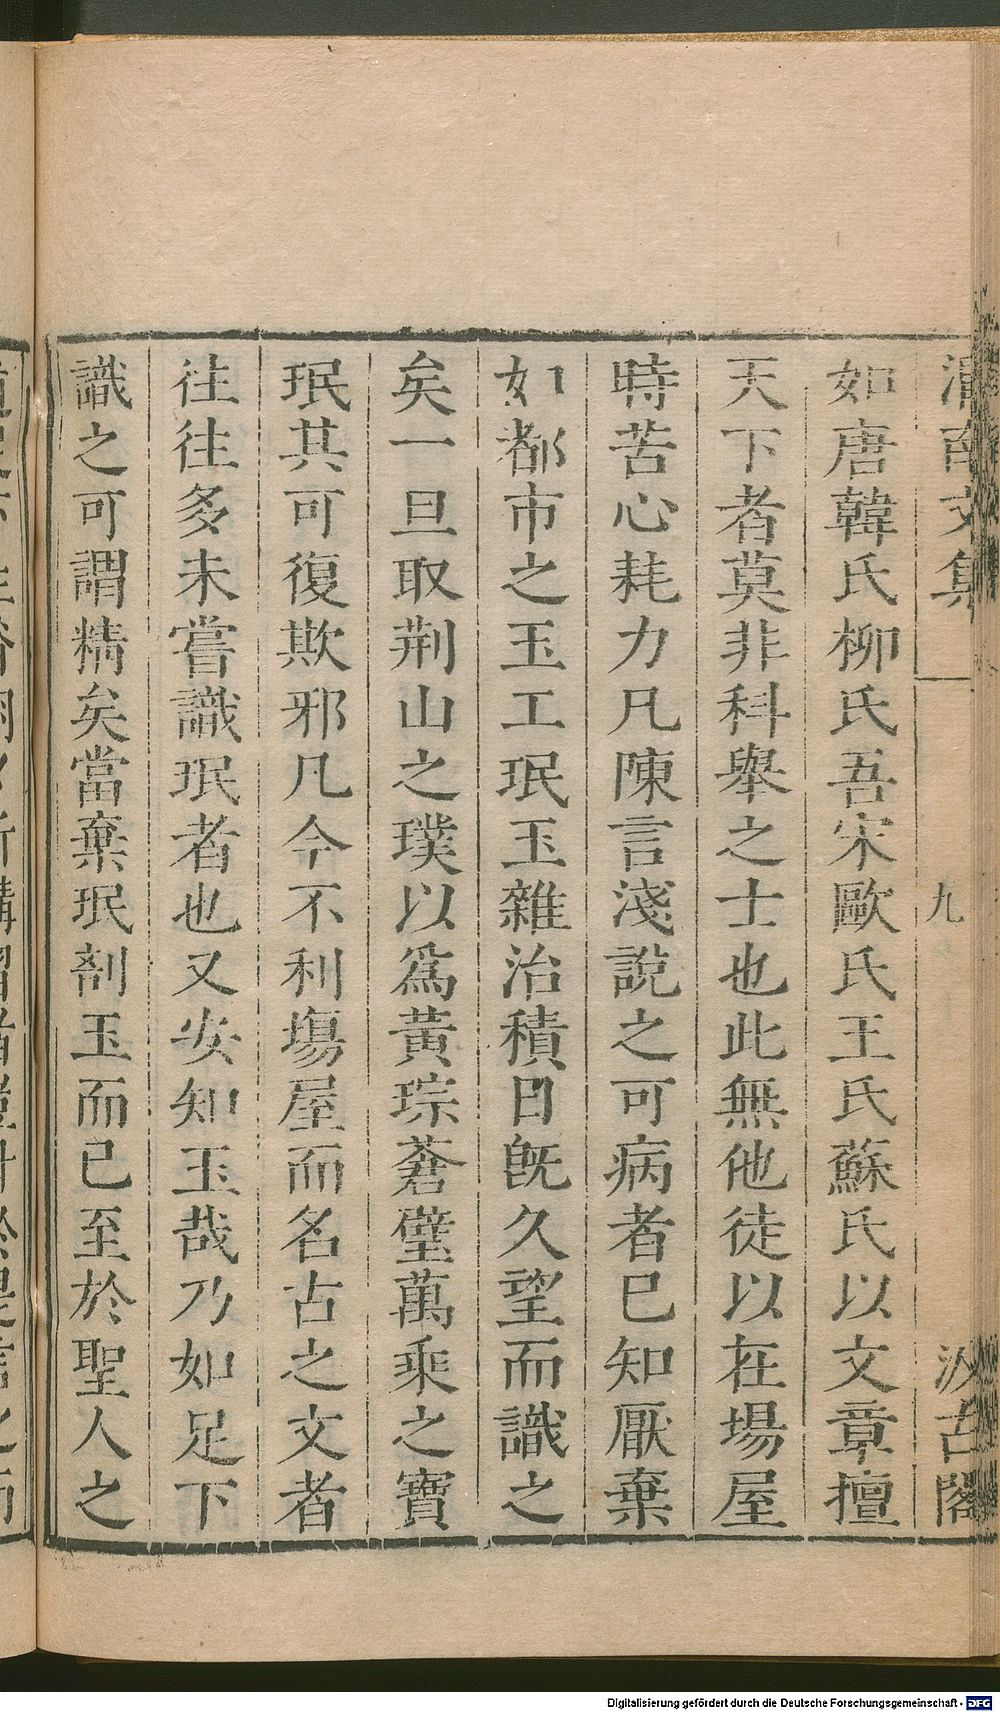 渭南文集 九 汲古閣
如唐韓氏柳氏吾宋歐氏王氏蘇氏以文章擅
天下者莫非科舉之士也此無他徒以在場屋
時苦心耗力凡陳言淺說之可病者已知厭棄
如都市之玉工珉玉雜治積日旣久望而識之
矣一旦取荆山之璞以爲黃琮蒼璧萬乘之寶
珉其可復欺邪凡今不利塲屋而名古之文者
徃往多未嘗識珉者也又安知玉哉乃如足下
識之可謂精矣當棄珉剖玉而已至於聖人之
Digitalisierung gefördert durch die Deutsche Forschungsgemeinschaft - DFG